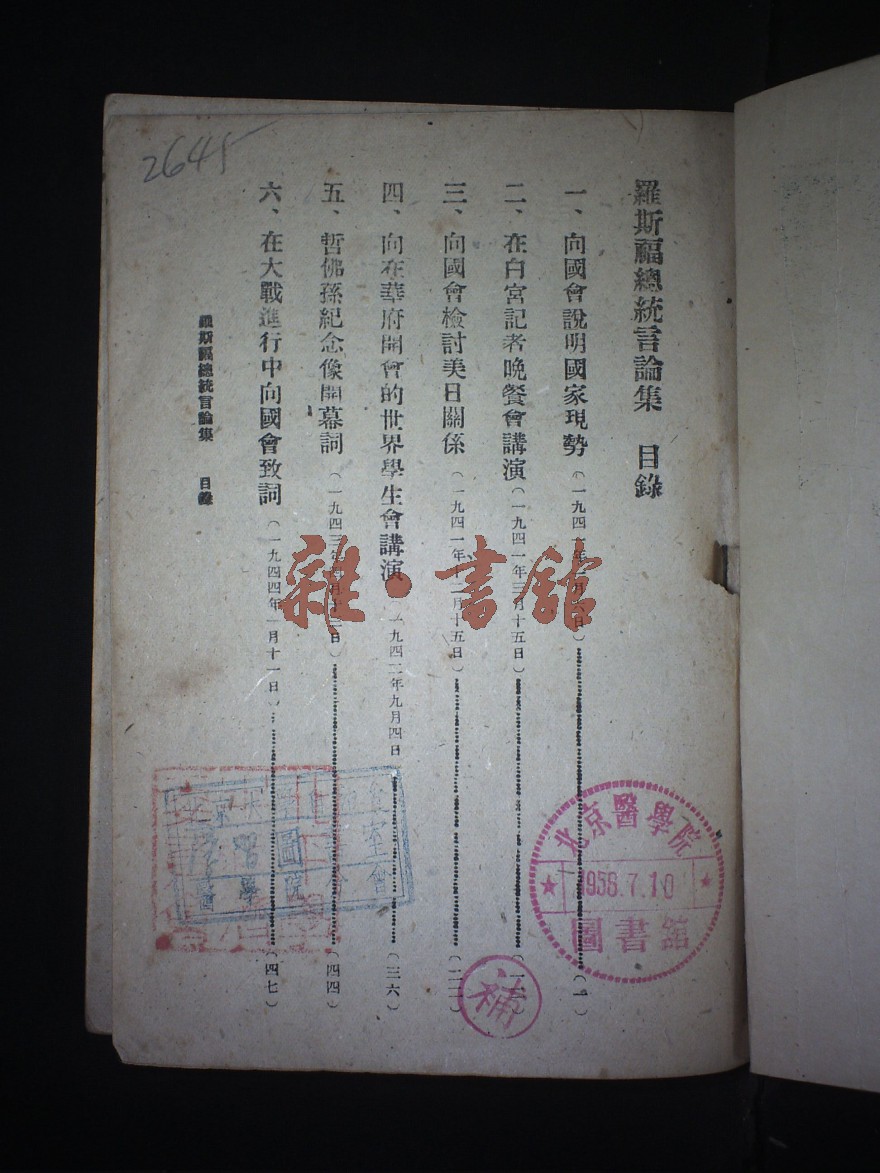 羅斯福總統言論集 目錄
一、向國會說明國家現勢(一九四一年 月六日)(一)
二、在白宮記者晚餐會講演(一九四一年三月十五日)
三、向國會檢討美日關係(一九四一年十二月十五日)
四、向在華府開會的世界學生會講演(一九四二年九月四日(三六)
五、哲佛孫紀念像開幕詞(一九四三年四月十三日)(四四)
六、在大戰進行中向國會致詞(一九四四年一月十一日)(四七)
羅斯福總統言論集 目錄
2645
雜·書館
北京醫學院
1956.7.10
圖書館
補